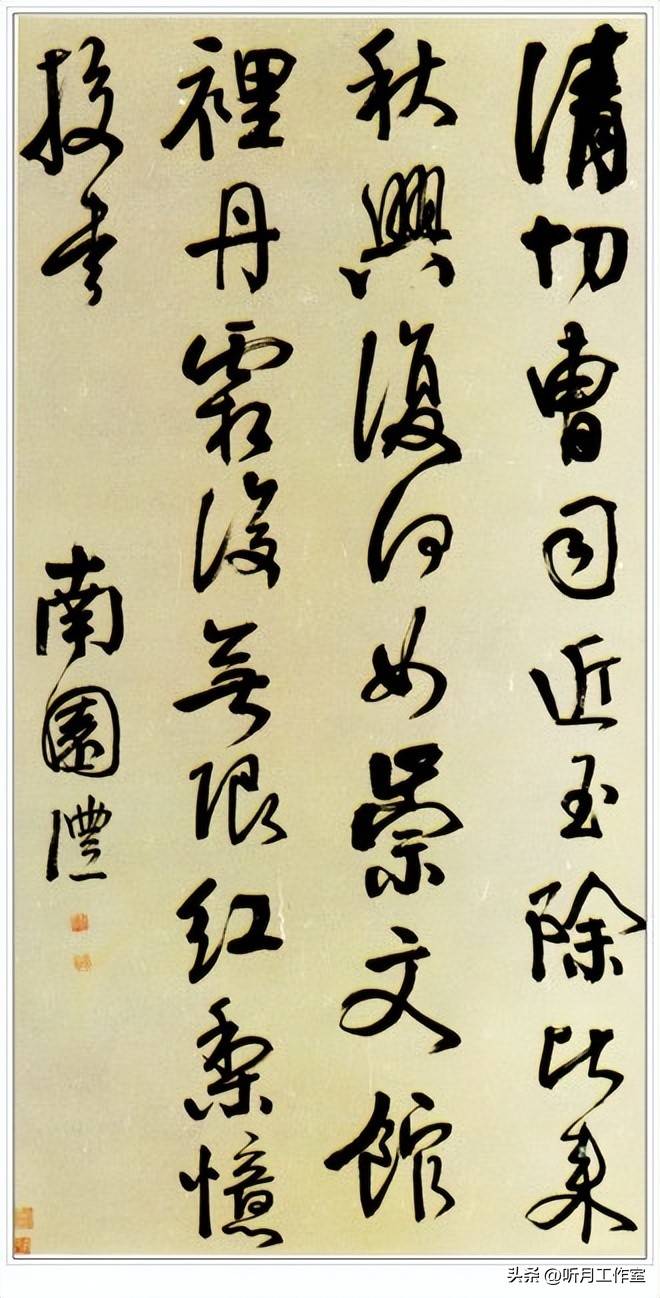 清切曹司近玉除比来
秋興復何如崇文館
裡丹霜後無限紅梨憶
校書
南園灃
头条 @听月工作室